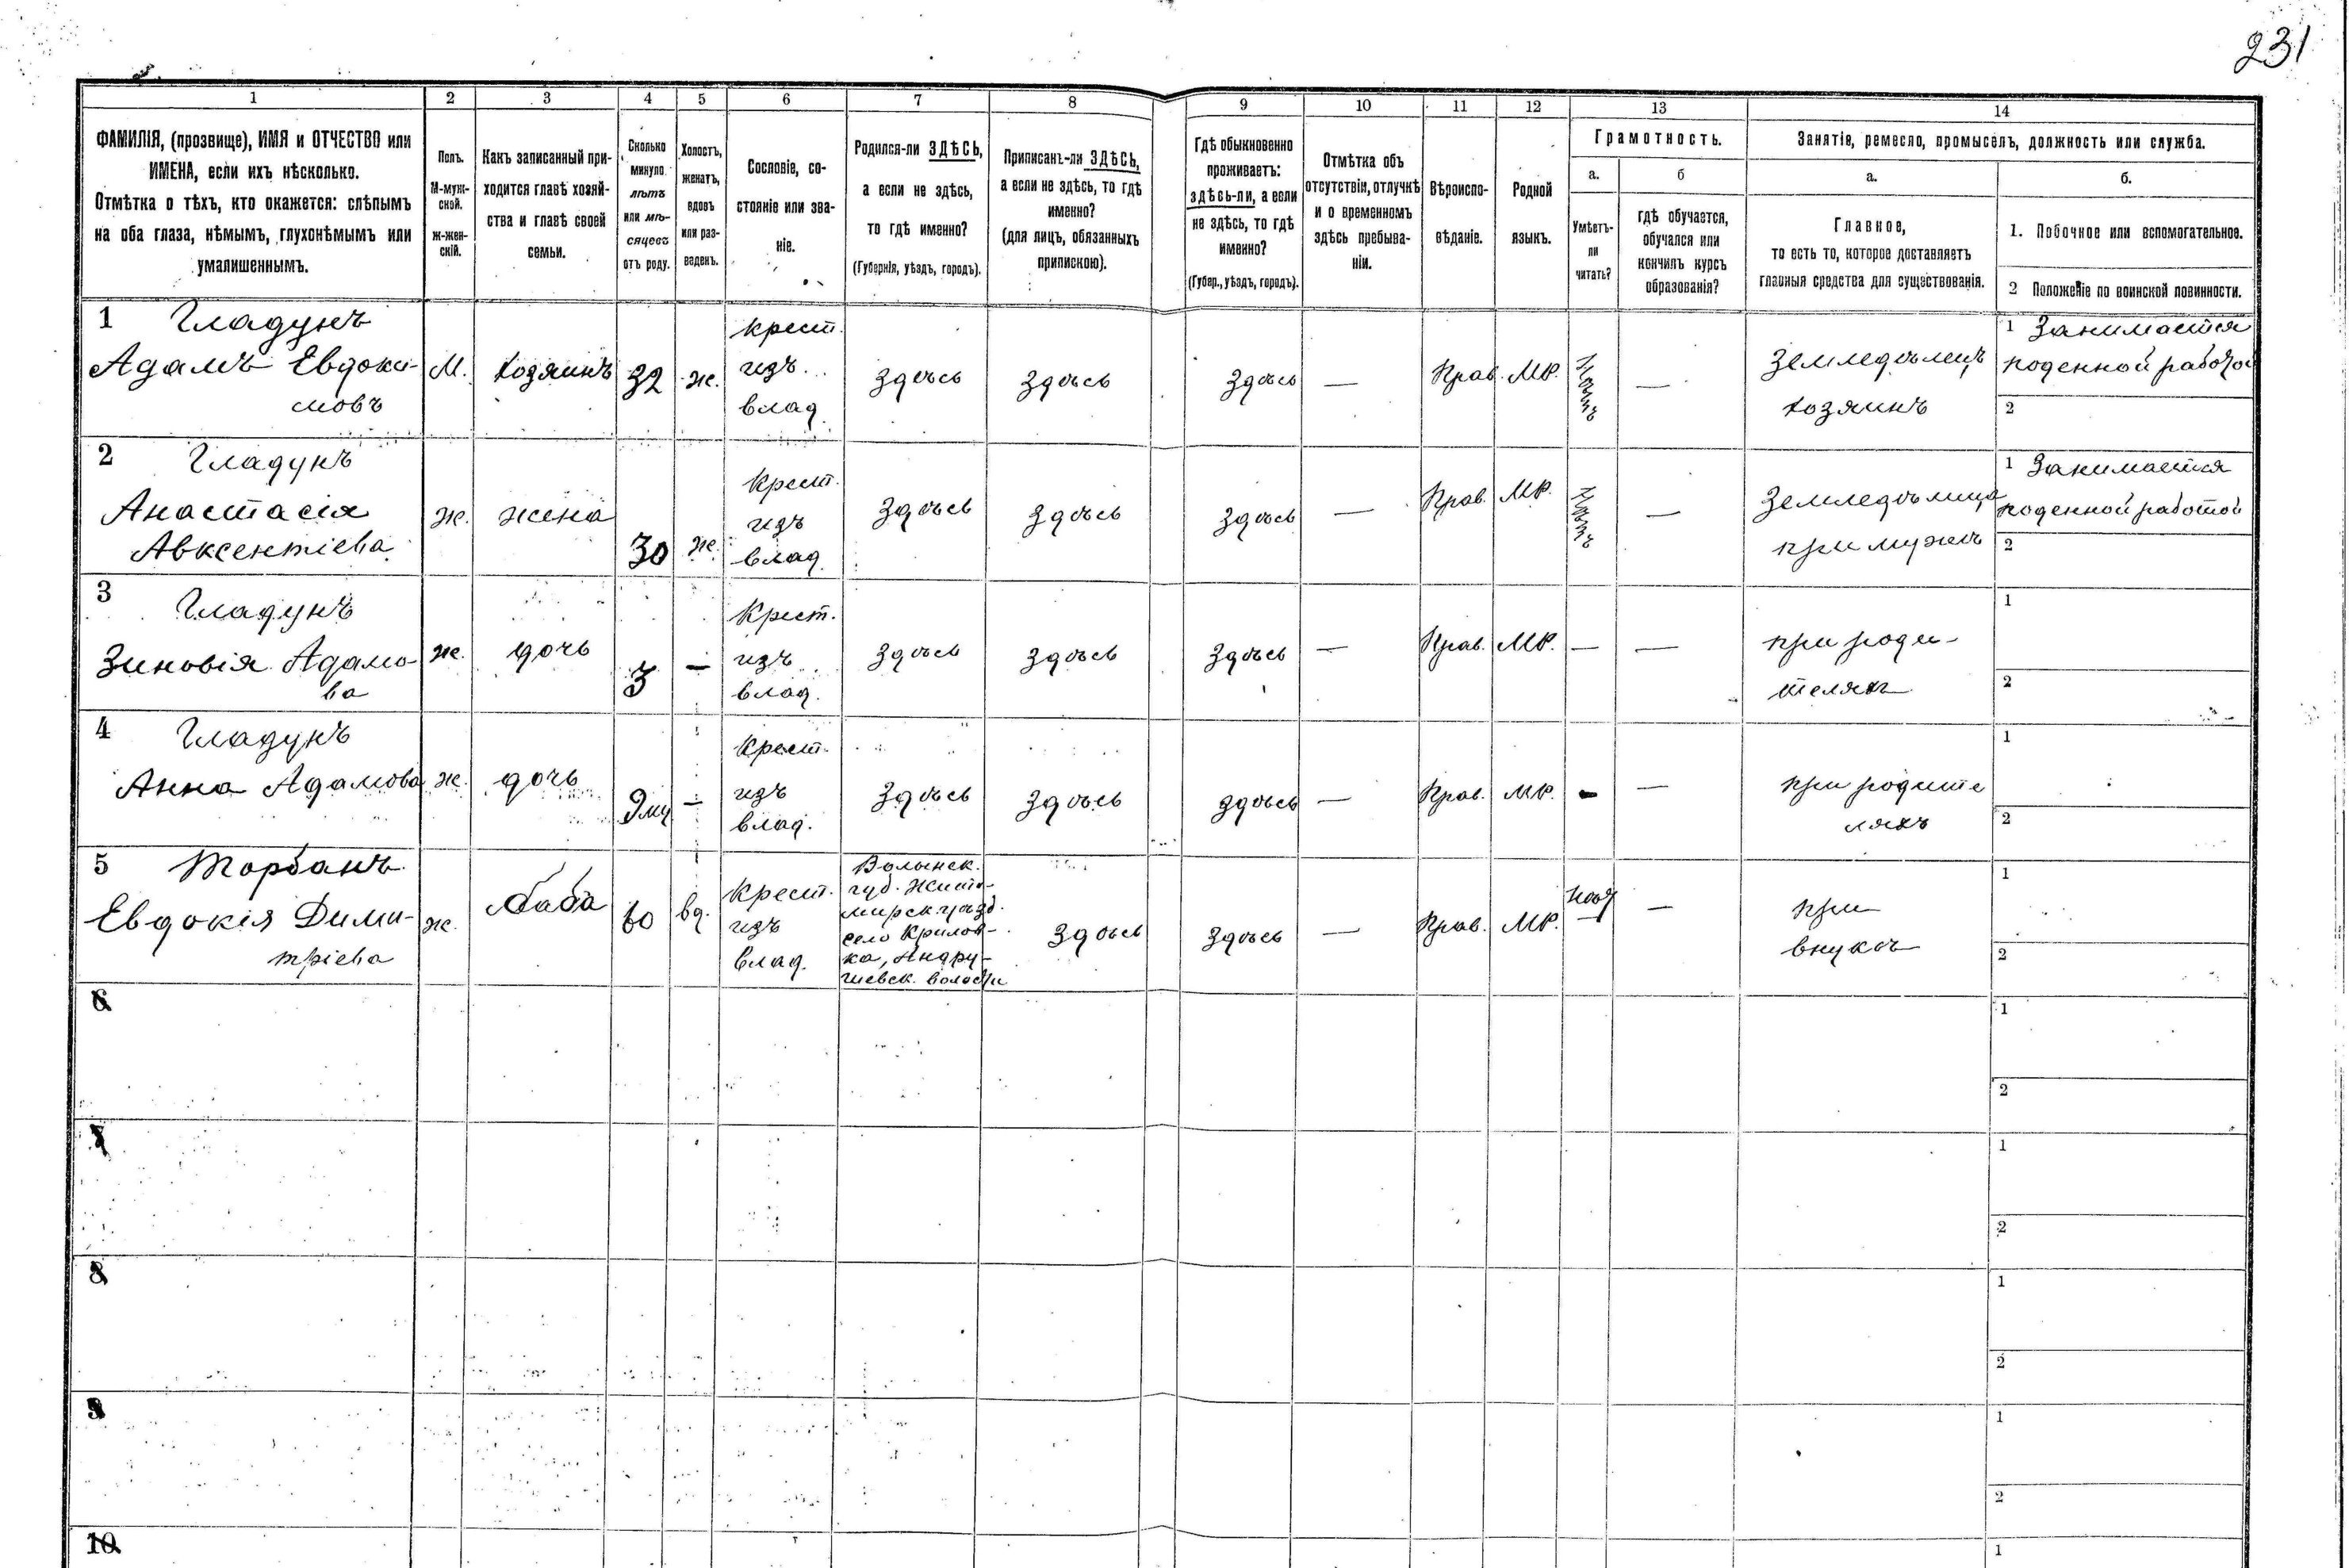 231
1 2 3 4 5 6 7 8 9 10 11 12 13 14
ФАМИЛІЯ, (прозвище), ИМЯ и ОТЧЕСТВО или
ИМЕНА, если ихъ нѣсколько.
Отмѣтка о тѣхъ, кто окажется: слѣпымъ
на оба глаза, нѣмымъ, глухонѣмымъ или
умалишеннымъ.
Полъ.
М-муж-
ской.
Ж-жен-
скій.
Какъ записанный при-
ходится главѣ хозяй-
ства и главѣ своей
семьи.
Сколько
минуло
лѣтъ
или мѣ-
сяцевъ
отъ роду.
Холостъ,
женатъ,
вдовъ
или раз-
веденъ.
Сословіе, со-
стояніе или зва-
ніе.
Родился-ли ЗДѢСЬ,
а если не здѣсь,
то гдѣ именно?
(Губернія, уѣздъ, городъ).
Приписанъ-ли ЗДѢСЬ,
а если не здѣсь, то гдѣ
именно?
(для лицъ, обязанныхъ
припискою).
Гдѣ обыкновенно
проживаетъ:
здѣсь-ли, а если
не здѣсь, то гдѣ
именно?
(Губер., уѣздъ, городъ).
Отмѣтка объ
отсутствіи, отлучкѣ
и о временномъ
здѣсь пребыва-
ніи.
Вѣроиспо-
вѣданіе.
Родной
языкъ.
Грамотность.
а.
Умѣетъ-
ли
читать?
б
гдѣ обучается,
обучался или
кончилъ курсъ
образованія?
Занятіе, ремесло, промыселъ, должность или служба.
а.
Главное,
то есть то, которое доставляетъ
главныя средства для существованія.
б.
1. Побочное или вспомогательное.
2 Положеніе по воинской повинности.
1 Гладунъ
Адамъ Евдоки-
мовъ
М.
хозяинъ
32
ж.
крест.
изъ
влад.
здѣсь
здѣсь
здѣсь
—
Прав.
МР.
Нѣтъ
—
Земледѣлецъ
хозяинъ
1 Занимается
поденной работой
2
2 Гладунъ
Анастасія
Авксентіева
ж.
жена
30
ж.
крест.
изъ
влад.
здѣсь
здѣсь
здѣсь
—
Прав.
МР.
Нѣтъ
—
Земледѣлица
при мужѣ
1 Занимается
поденной работой
2
3 Гладунъ
Зиновія Адамо-
ва
ж.
дочь
3
—
Крест.
изъ
влад.
здѣсь
здѣсь
здѣсь
—
Прав.
МР.
—
—
при роди-
теляхъ
1
2
4 Гладунъ
Анна Адамова
ж.
дочь
9 мц
—
Крест.
изъ
влад.
здѣсь
здѣсь
здѣсь
—
Прав.
МР.
—
—
при родите
ляхъ
1
2
5 Торбанъ
Евдокія Дими-
тріева
ж.
баба
60
вд.
Крест.
изъ
влад.
Волынск.
губ. Жито-
мирск. уѣзд.
село Крилов-
ка, Андру-
шевск. волости
здѣсь
здѣсь
—
Прав.
МР.
—
при
внукѣ
1
2
6
1
2
7
1
2
8
1
2
9
1
2
10
1